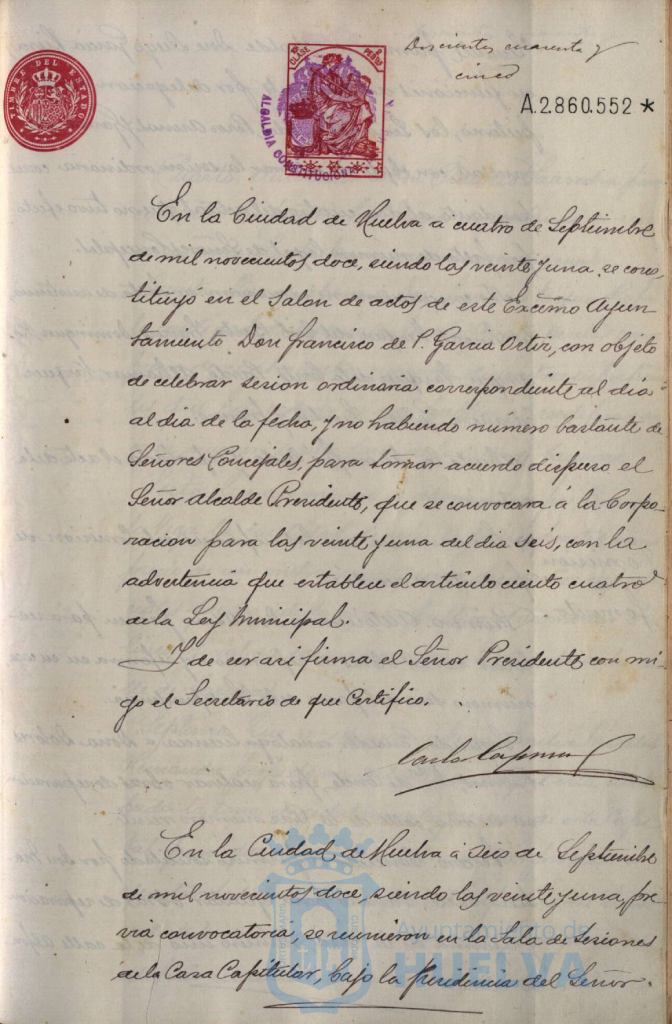 TIMBRE DEL ESTADO
CLASE
PESETAS
ALCALDIA CONSTITUCIONAL
Doscientos cuarenta y
cinco
A.2.860.552 *
En la Ciudad de Huelva á cuatro de Septiembre
de mil novecientos doce, siendo las veinte y una, se cons-
tituyó en el Salon de actos de este Excmo Ayun
tamiento Don Francisco de P. Garcia Ortiz, con objeto
de celebrar sesion ordinaria correspondiente al dia
al dia de la fecha, y no habiendo número bastante de
Señores Concejales, para tomar acuerdo dispuso el
Señor Alcalde Presidente, que se convocara á la Corpo-
racion para las veinte y una del dia seis, con la
advertencia que establece el artículo ciento cuatro
de la Ley Municipal.
Y de ser asi firma el Señor Presidente con mi-
go el Secretario de que Certifico.
En la Ciudad de Huelva á seis de Septiembre
de mil novecientos doce, siendo las veinte y una, pre-
via convocatoria, se reunieron en la Sala de Sesiones
de la Casa Capitular, bajo la Presidencia del Señor
Ayuntamiento de
HUELVA